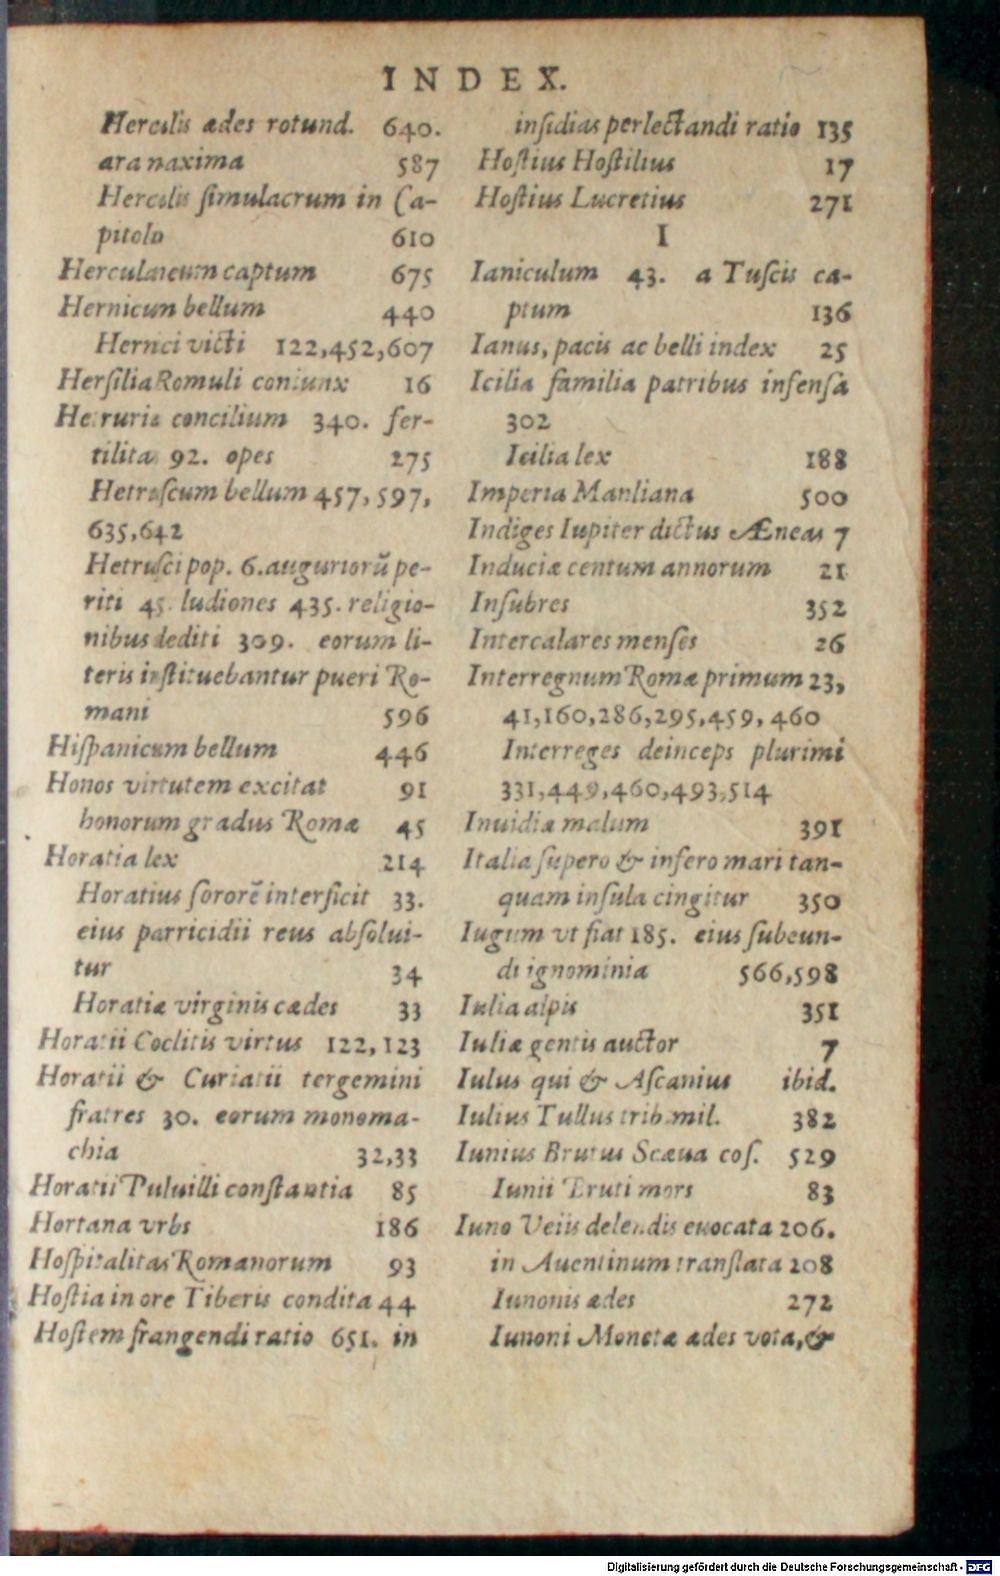 INDEX.
Herculis ædes rotund. 640.
ara maxima 587
Herculis simulacrum in Ca-
pitolo 610
Herculaneum captum 675
Hernicum bellum 440
Hernici victi 122,452,607
Hersilia Romuli coniunx 16
Hetruriæ concilium 340. fer-
tilitas 92. opes 275
Hetruscum bellum 457, 597,
635,642
Hetrusci pop. 6. auguriorũ pe-
riti 45. ludiones 435. religio-
nibus dediti 309. eorum li-
teris instituebantur pueri Ro-
mani 596
Hispanicum bellum 446
Honos virtutem excitat 91
honorum gradus Romæ 45
Horatia lex 214
Horatius sororẽ interficit 33.
eius parricidii reus absolui-
tur 34
Horatiæ virginis cædes 33
Horatii Coclitis virtus 122,123
Horatii & Curiatii tergemini
fratres 30. eorum monoma-
chia 32,33
Horatii Puluilli constantia 85
Hortana vrbs 186
Hospitalitas Romanorum 93
Hostia in ore Tiberis condita 44
Hostem frangendi ratio 651. in
insidias perlectandi ratio 135
Hostius Hostilius 17
Hostius Lucretius 271
I
Ianiculum 43. a Tuscis ca-
ptum 136
Ianus, pacis ac belli index 25
Icilia familia patribus infensa
302
Icilia lex 188
Imperia Manliana 500
Indiges Iupiter dictus Æneas 7
Induciæ centum annorum 21
Insubres 352
Intercalares menses 26
Interregnum Romæ primum 23,
41,160,286,295,459, 460
Interreges deinceps plurimi
331,449,460,493,514
Inuidiæ malum 391
Italia supero & infero mari tan-
quam insula cingitur 350
Iugum vt fiat 185. eius subeun-
di ignominia 566,598
Iulia alpis 351
Iuliæ gentis auctor 7
Iulus qui & Ascanius ibid.
Iulius Tullus trib. mil. 382
Iunius Brutus Scæua cos. 529
Iunii Bruti mors 83
Iuno Veiis delendis euocata 206.
in Auentinum translata 208
Iunonis ædes 272
Iunoni Monetæ ædes vota, &
Digitalisierung gefördert durch die Deutsche Forschungsgemeinschaft - DFG